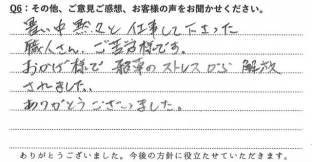 Q6：その他、ご意見ご感想、お客様の声をお聞かせください。
暑い中黙々と仕事して下さった
職人さん、ご苦労様です。
おかげ様で 駐車のストレスから 解放
されました。
ありがとうございました。
ありがとうございました。今後の方針に役立たせていただきます。